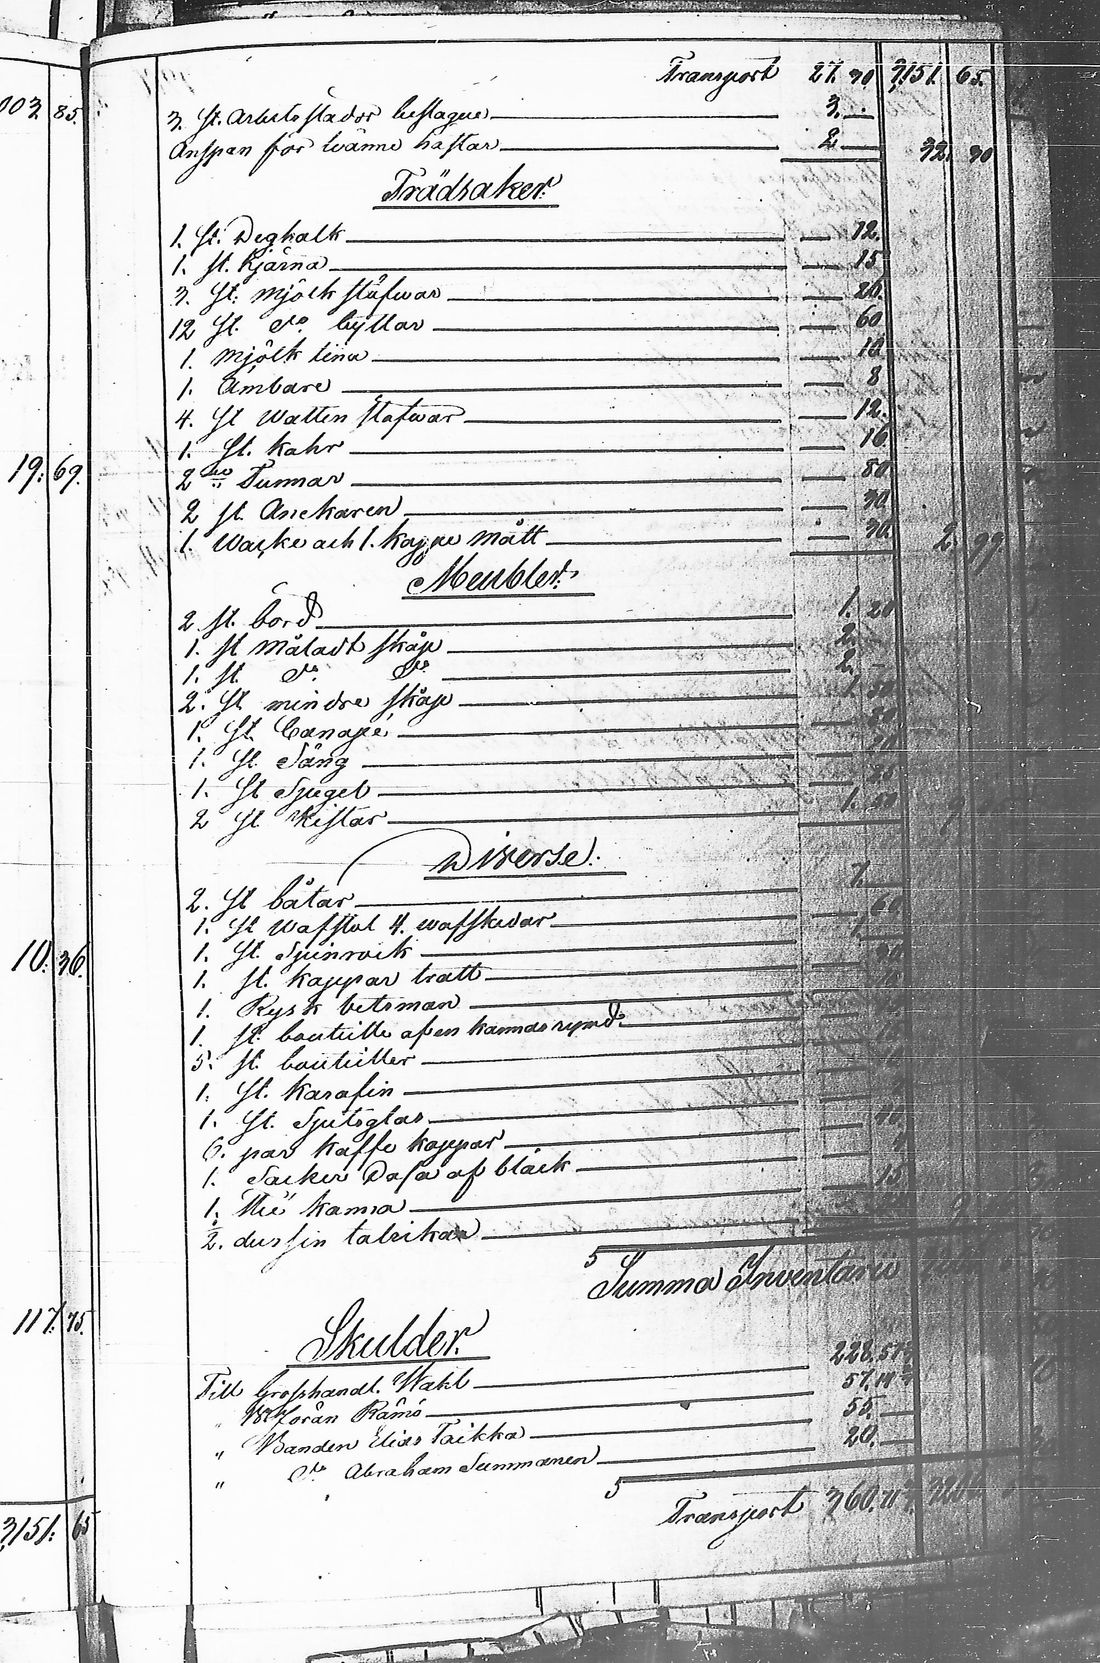 003. 85.
19. 69.
10. 36.
117. 75.
3151. 65
Transport 27. 30 3151. 65.
3. st. Arbetsslädor beslagne 3.
Anspan för tvänne hästar 2 32. 30
Trädsaker:
1. st. Deghalk 12.
1. st. Kjärna 15
3. st. mjölk stäfwor 26.
12 st. do byttor 60
1. mjölk tina 10
1. Ämbare 8
4. st watten stäfwor 12.
1. st. kahr 16
2ne Tunnor 80
2 st. Anckaren 30
1. Wacke och 1. kappe mått 30. 2. 99.
Meubler:
2. st. bord 1. 20
1. st måladt skåp 2.
1. st do do 2.
2. st mindre skåp 1. 50
1. st. Canapé 80
1. st. Säng
1. st Spegel 25
2 st. Kistor 1. 50 9
Diverse:
2. st båtar 7.
1. st wäfstol 4. wäfskedar 60
1. st. Spinrock 1.
1. st. koppar tratt 30
1. Rysk betsman
1. st. bouteille af en kannas rymd:
5. st. bouteiller
1. st. karafin
1. st. Spetsglas
6. par kaffe koppar
1. Socker Dosa af bläck 4
1. Thé kanna 15
½. dussin talrikar
Summa Inventarii
Skulder.
Till Grosshandl. Wahl 228. 57
" Rämö 57. 14
" Bonden Elias Taikka 55.
" do Abraham Summanen 20.
Transport 360. 71